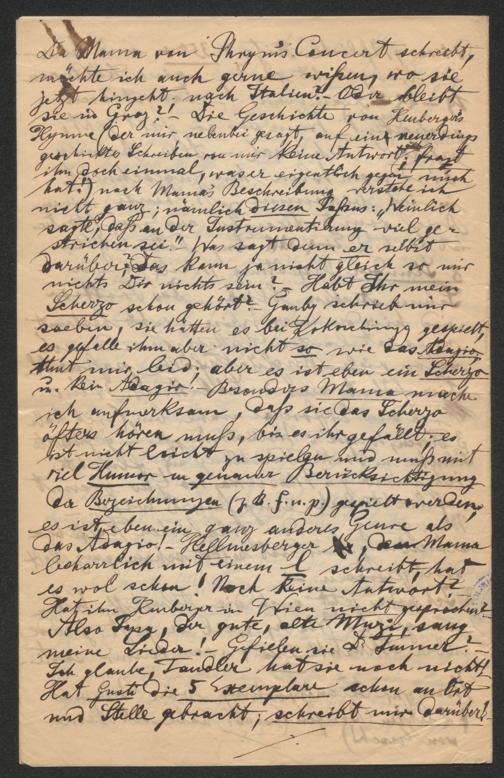 Da Mama von Thryms Concert schreibt,
möchte ich auch gerne wißen, wo sie
jetzt hingeht, nach Italien? – Oder bleibt
sie in Graz? – Die Geschichte von Heuberger's
Hymne (der mir nebenbei gesagt, auf ein neuerdings
geschicktes Schreiben von mir keine Antwort, fragt
ihn doch einmal, was er eigentlich gegen mich
hat!) nach Mama's Beschreibung verstehe ich
nicht ganz; nämlich diesen Passus: „Weinlich
sagte, daß an der Instrumentirung viel ge-
strichen sei". Was sagt denn er selbst
darüber? Das kann ja nicht gleich so mir
nichts Dir nichts sein? – Habt Ihr mein
Scherzo schon gehört? – Gauby schrieb mir
soeben, sie hätten es bei gespielt,
es gefalle ihm aber nicht so wie das Adagio,
thut mir leid; aber es ist eben ein Scherzo
u. kein Adagio! – Besonders Mama mache
ich aufmerksam, daß sie das Scherzo
öfters hören muß, bis es ihr gefällt; es
ist nicht leicht zu spielen und muß mit
viel Humor u. genauer Berücksichtigung
der Bezeichnungen (z. B. f. u. p) gespielt werden,
es ist eben ein ganz anderes Genre als
das Adagio! – Hellmesberger, den Mama
beharrlich mit einem l schreibt, hat
es wol schon! Noch keine Antwort?
Hat ihn Heuberger in Wien nicht gesprochen?
Also der gute, alte sang
meine Lieder! – Gefielen sie Dr.
Ich glaube, Tandler hat sie noch nicht!
Hat Gusti die 5 Exemplare schon an Ort
und Stelle gebracht; schreibt mir darüber!